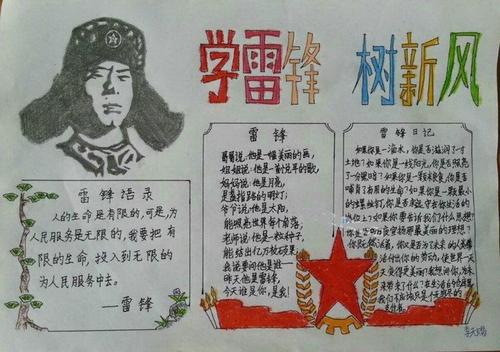 学雷锋 树新风
雷锋语录
人的生命是有限的,可是,为
人民服务是无限的,我要把有
限的生命,投入到无限的
为人民服务中去。
—雷锋
雷锋
哥哥说,他是一幅美丽的画,
姐姐说,他是一首优美的歌,
妈妈说,他是月亮,
是盏指路的明灯;
爷爷说,他是太阳,
能照亮世界每个角落;
老师说,他是一粒种子,
能结出亿万枚硕果
我请要问他是谁—
昨天他是雷锋,
今天谁是你,是我!
雷锋日记
如果你是一滴水,你是否滋润了一寸
土地?如果你是一线阳光,你是否照亮
了一分黑暗?如果你是一颗粮食,你是否
哺育了有用的生命?如果你是一颗最小
的螺丝钉,你是否永远守在你生活的
岗位上?如果你要告诉我们什么思想
你是否在日夜宣扬那最美丽的理想?
你既然活着,你又是否为了未来的人类
活付出你的劳动,使世界一天
天变得更美丽?我想问你,为未
来带来了什么?在生活的仓库里
我们不应该只是个无穷尽的